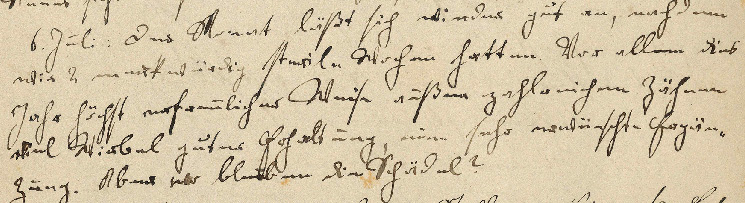 6. Juli: Das Monat läßt sich wieder gut an, nachdem
wir 2 merkwürdig sterile Wochen hatten. Vor allem dies
Jahr höchst erfreulicher Weise außer zahlreichen Zähnen
viel Wirbel guter Erhaltung, eine sehr erwünschte Ergän-
zung. Aber wo bleiben die Schädel?